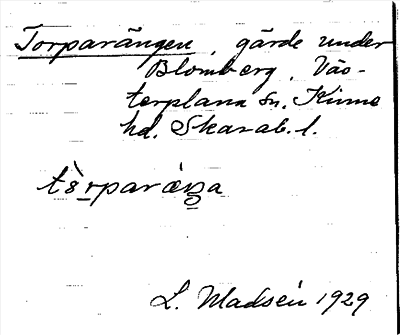 Torparängen, gärde under
Blomberg, Väs-
terplana sn. Kinne
hd. Skarab. l.
tɛ̀r̠paráŋ̠a
L. Madsén 1929